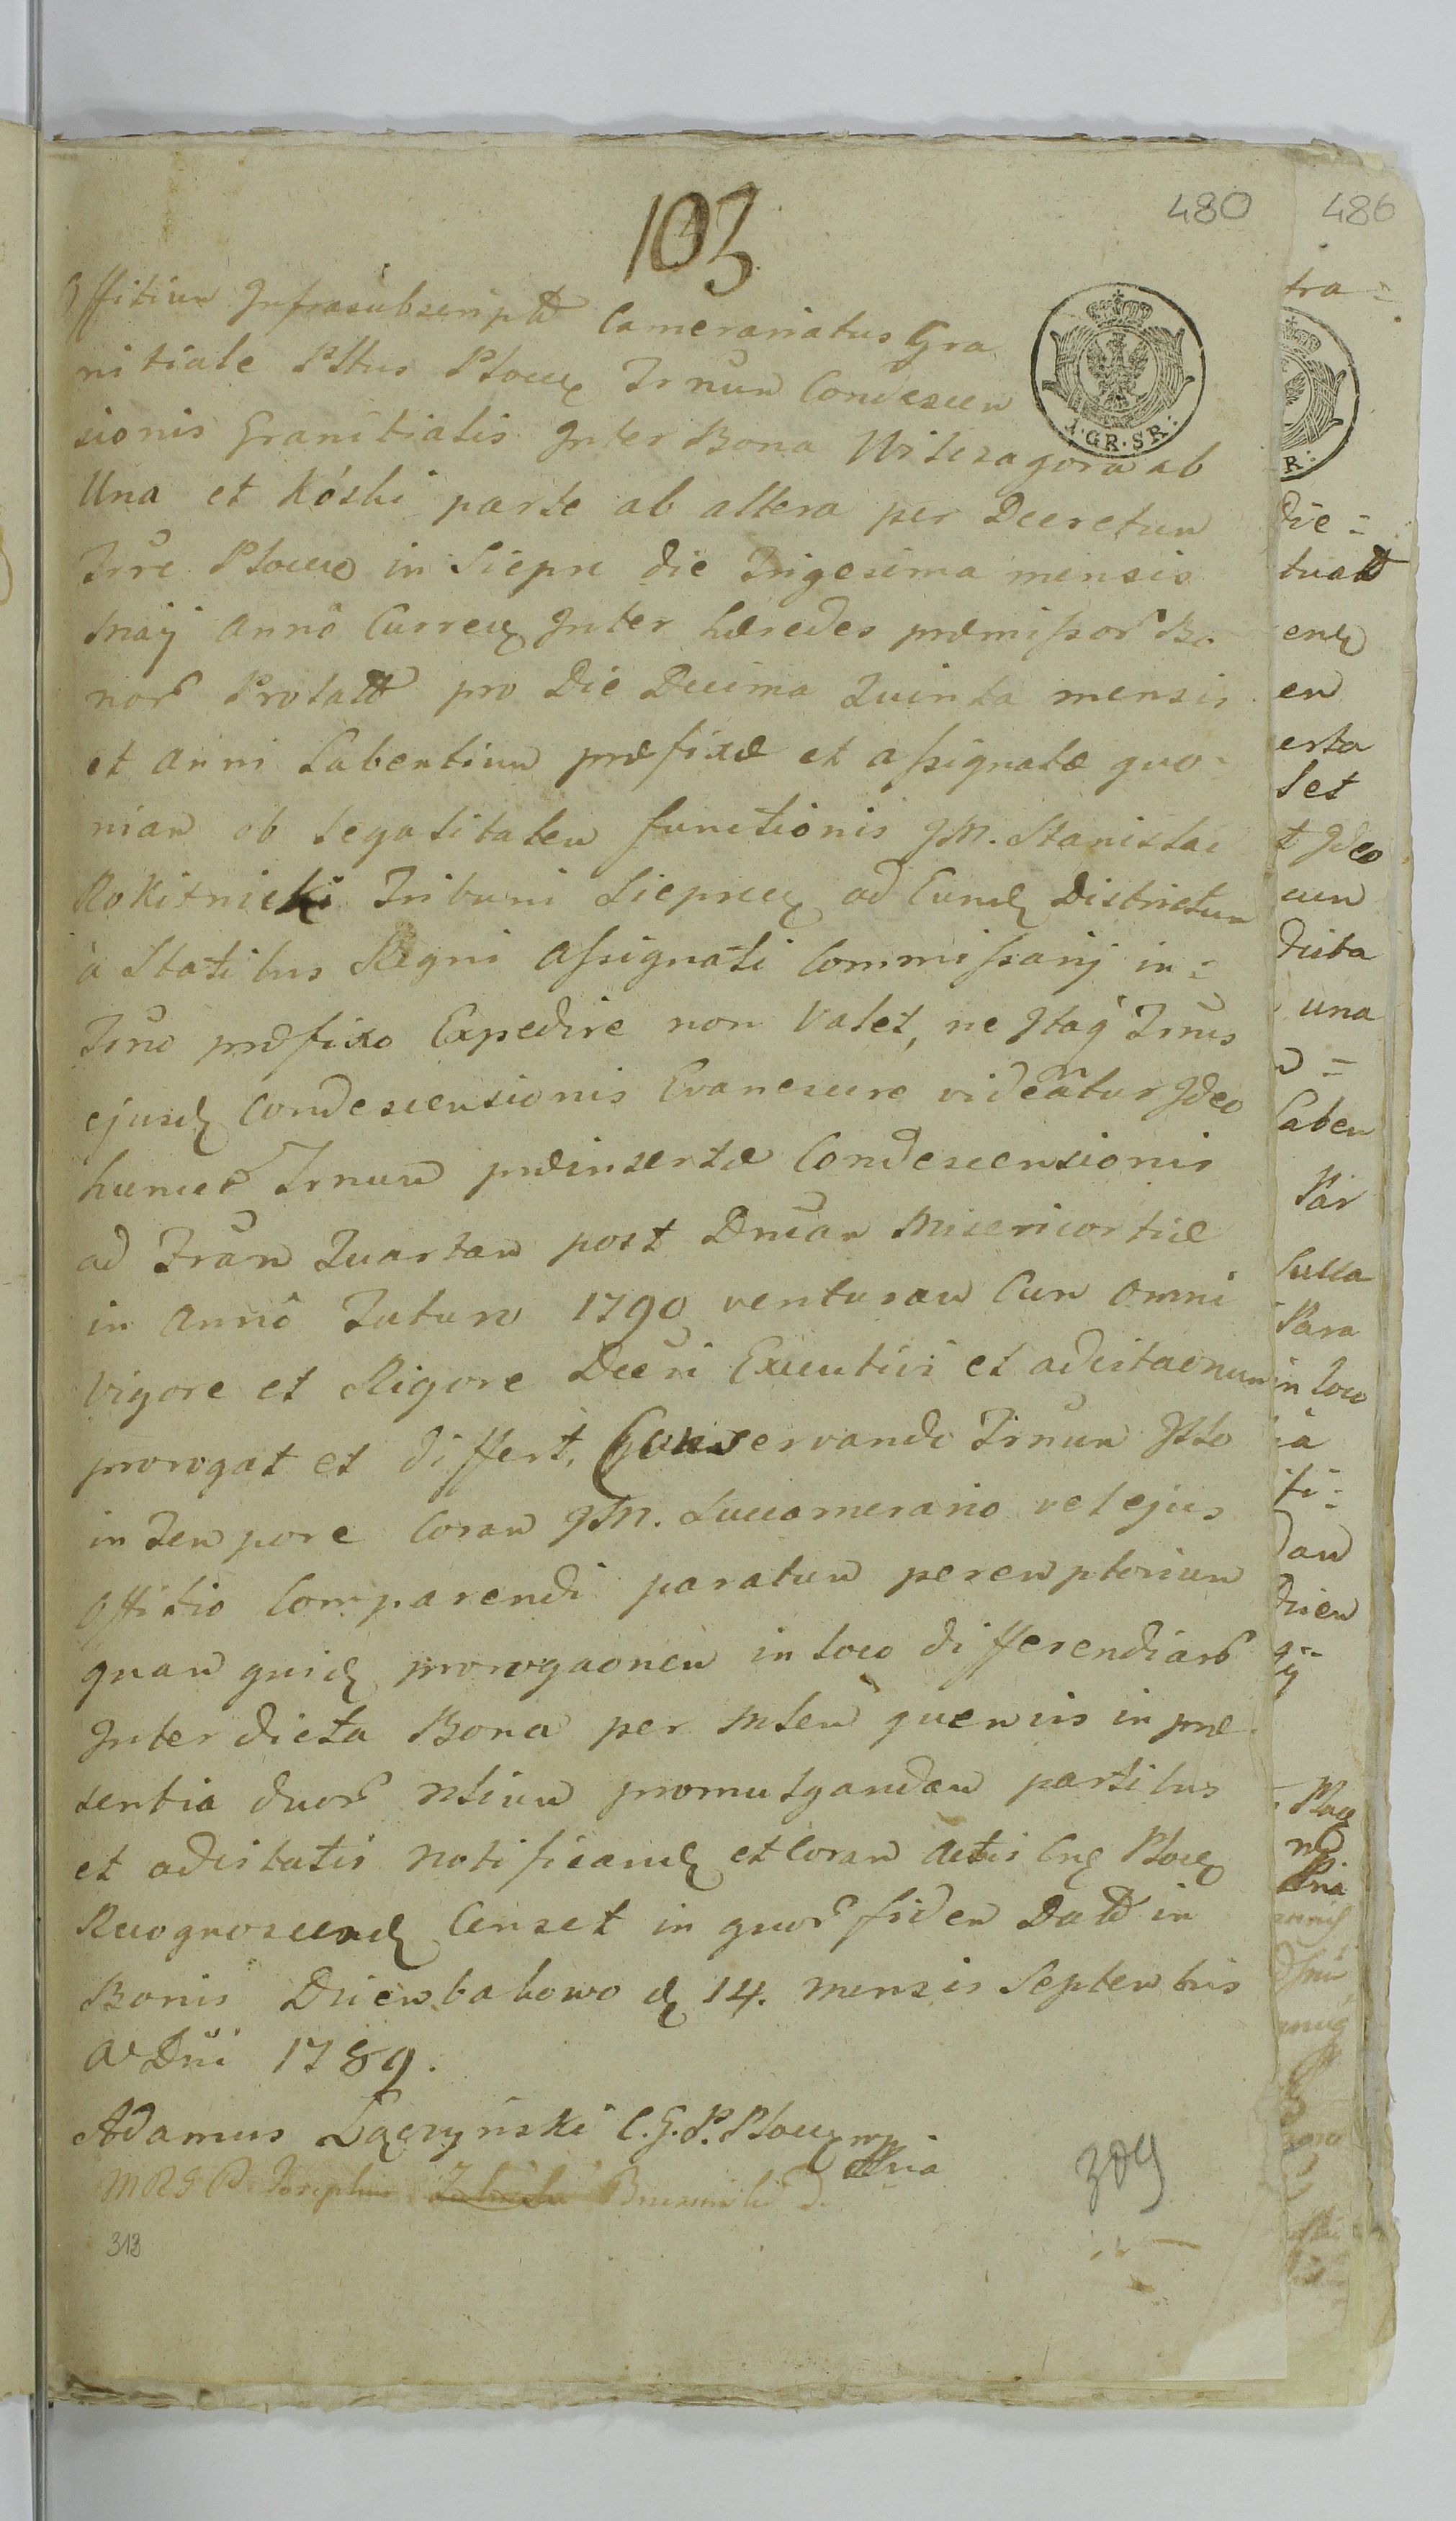 103
480
Offitium Infrasubscriptt Camerariatus Gra
nitiale Pltus Ploceñ Trnum Condescen
sionis Granitialis Inter Bona Wilczagora ab
Una et Kóski parte ab altera per Decretum
Trre Ploceñ in Siepre die Trigesima mensis
Maij Anno Curreñ Inter hæredes præmissor Bo
nor Prolatt pro Die Decima Quinta mensis
et Anni Labentium præfixæ et assignatæ quo-
niam ob legalitatem functionis JM. Stanislai
Rokitnicki Tribuni Siepreñ ad Eumd Districtum
à Statibus Regni Assignati Commissarij in=
Trno præfixo Expedire non Valet, ne Itaq Trnus
ejusd Condescensionis Evanescere videatur Ideo
huncce Trnum præinsertæ Condescensionis
ad Fram Quartam post Dnicam Misericordiæ
in Anno Futuro 1790 venturam Cum omni
Vigore et Rigore Decri Executivi et adcitaonum
prorogat et differt, Conservando Trnum Isto
in Tempore Coram JM. Succamerario vel ejus
Offitio Comparendi paratum peremptorium
quam quid prorogaonem in loco differendiar
Inter dicta Bona per Mlem quemvis in præ
sentia duor Nlium promulgandam partibus
et adcitatis notificand et Coram Actis Cng Ploceñ
Recognoscend Censet in quor fidem Datt in
Bonis Dziembakowo d 14. mensis Septembris
A Dni 1789.
Adamus Łączyński C.G.P. Ploceñ mp
309
313